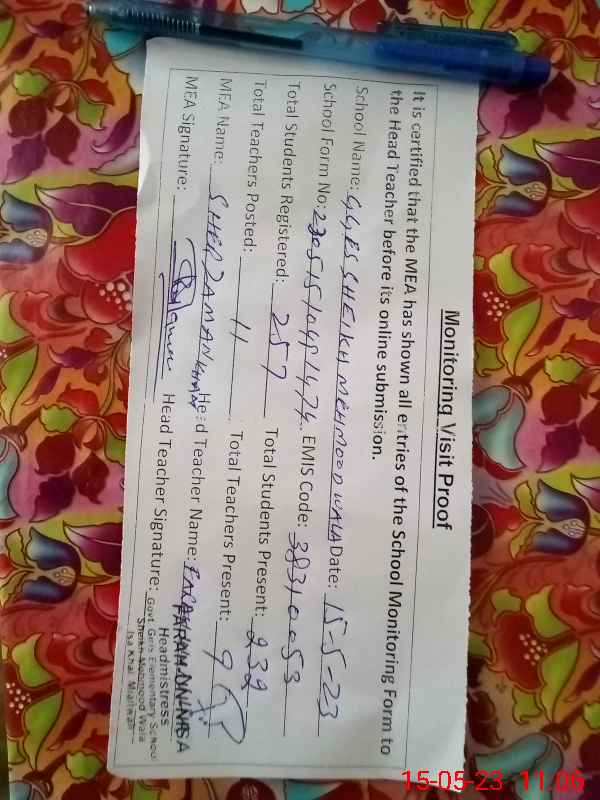 Monitoring Visit Proof
It is certified that the MEA has shown all entries of the School Monitoring Form to
the Head Teacher before its online submission.
School Name: G.G.E.S SHEIKH MEHMOOD WALA Date: 15-5-23
School Form No: EMIS Code: 38310053
Total Students Registered: 257 Total Students Present: 232
Total Teachers Posted: 11 Total Teachers Present: 9
MEA Name: SHER ZAMAN KHAN Head Teacher Name:
MEA Signature: Head Teacher Signature:
FARAH-UN-NISA
Headmistress
Govt. Girls Elementary School
Sheikh Mehmood Wala
Isa Khel Mianwali
15-05-23 11:06